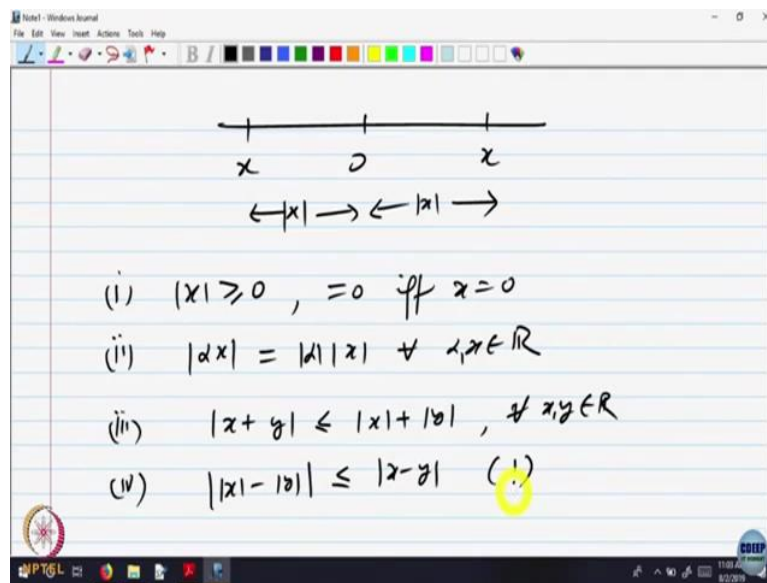 Note1 - Windows Journal
File Edit View Insert Actions Tools Help
B I
x 0 x
|x| |x|
(i) |x| ≥ 0 , = 0 iff x = 0
(ii) |αx| = |α||x| ∀ α,x ∈ ℝ
(iii) |x + y| ≤ |x| + |y| , ∀ x,y ∈ ℝ
(iv) ||x| - |y|| ≤ |x - y| (!)
NPTEL
COEP
8/2/2019